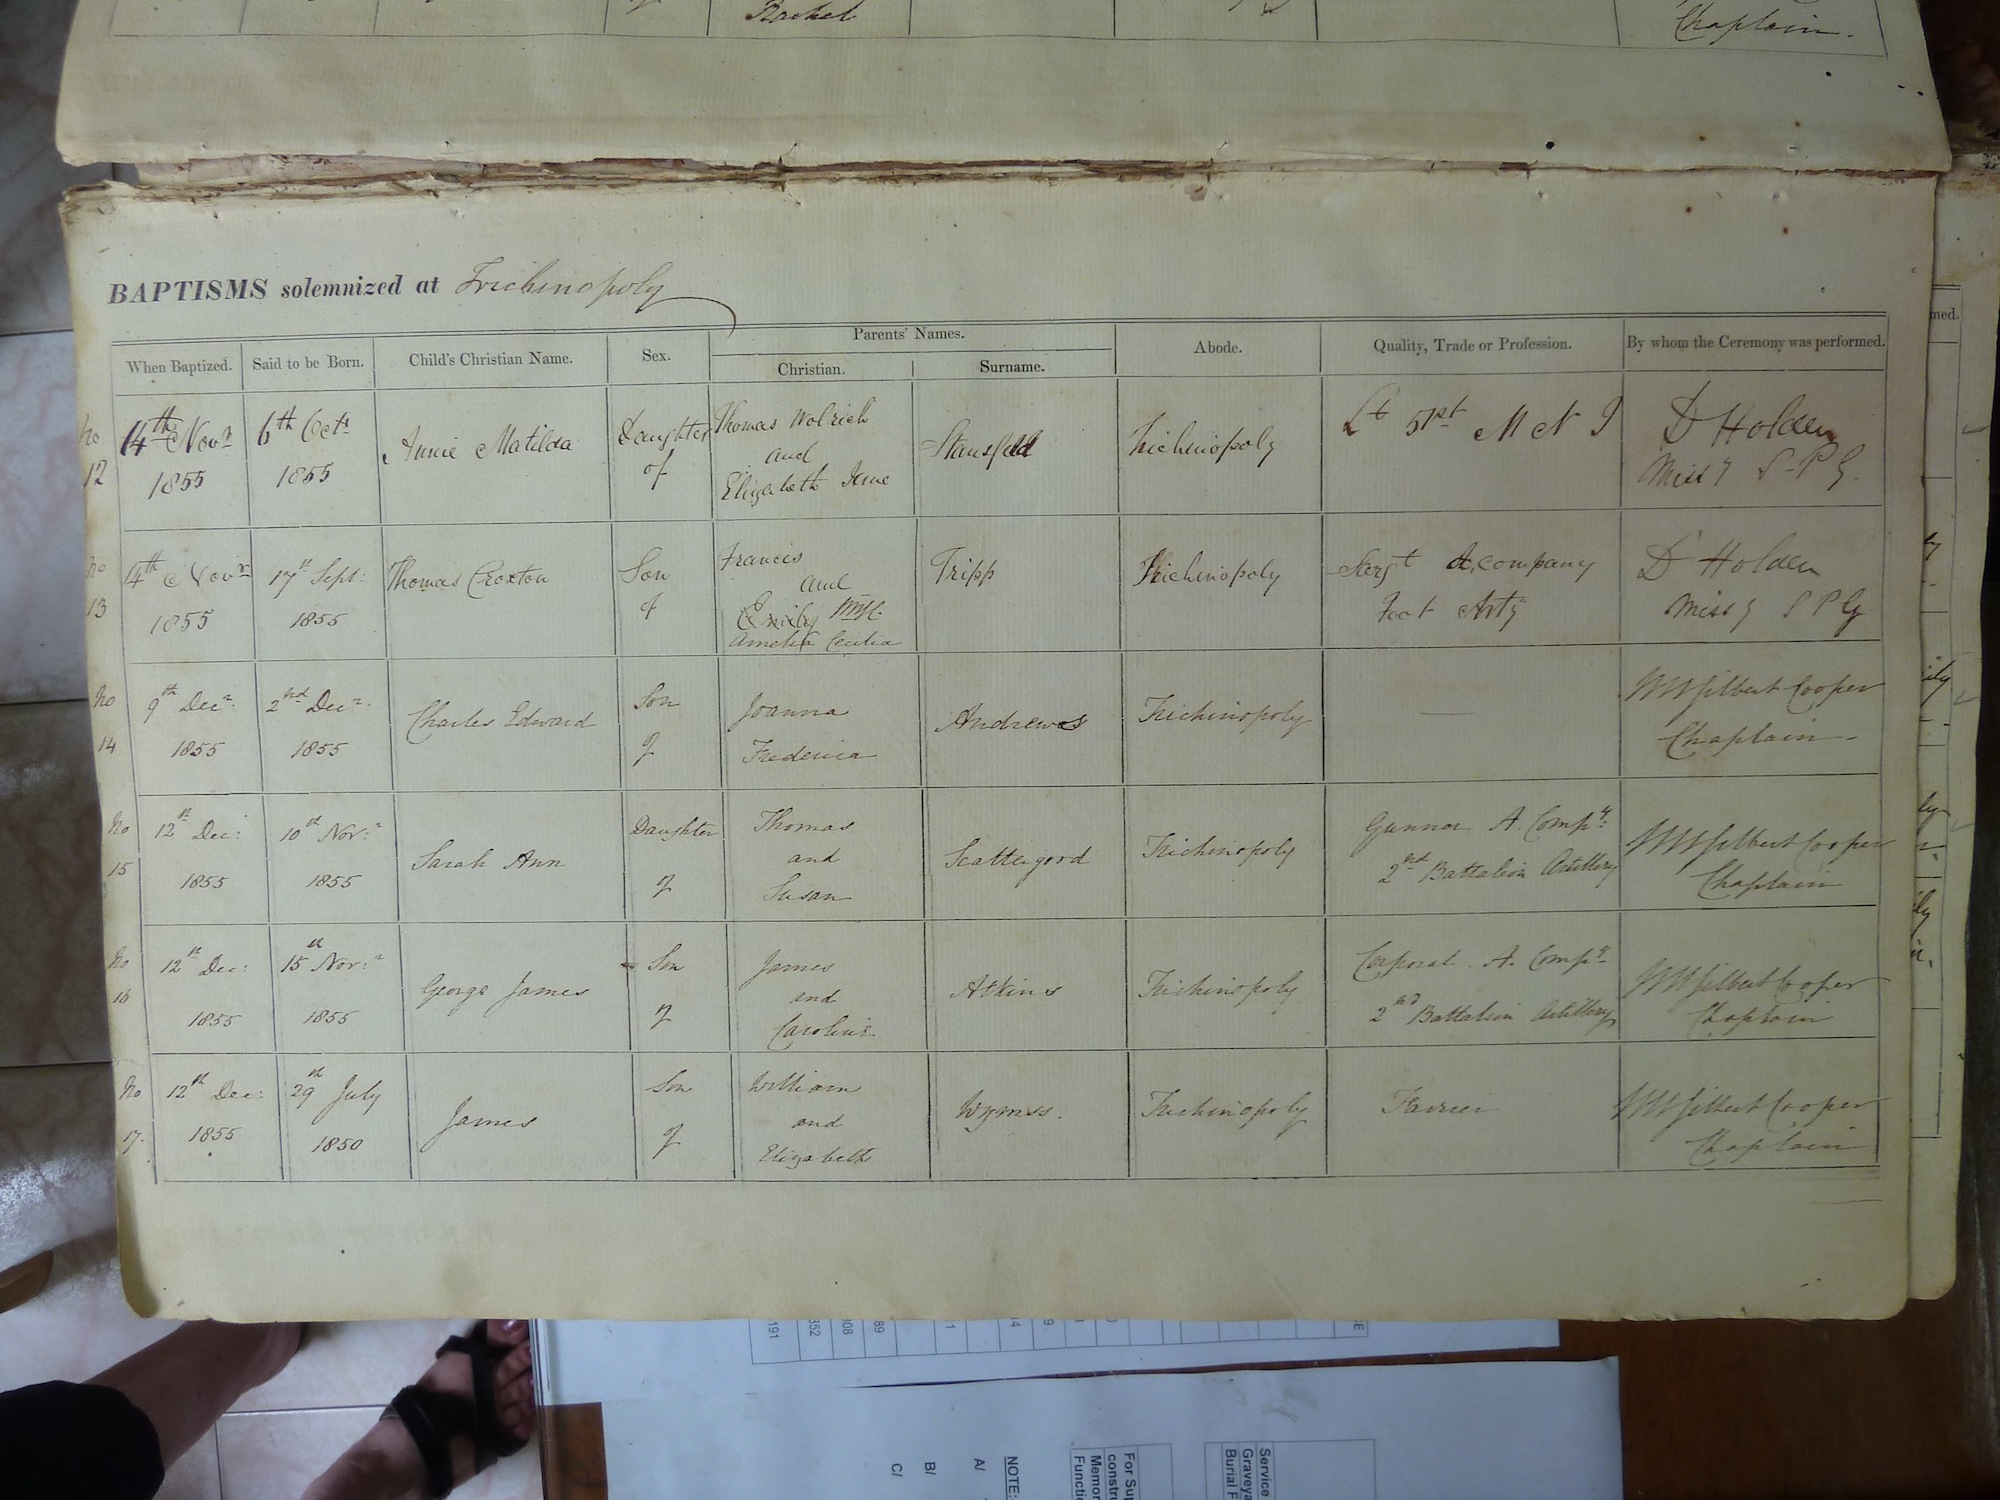 Rachel
Chaplain.
BAPTISMS solemnized at Trichinopoly
When Baptized. Said to be Born. Child's Christian Name. Sex. Parents' Names. Abode. Quality, Trade or Profession. By whom the Ceremony was performed.
Christian. Surname.
No 12
4th Novr 1855
6th Octr 1855
Annie Matilda
Daughter of
Thomas Wolrich
and
Elizabeth Jane
Stansfeld
Trichinopoly
Lt 51st M N I
D Holden
Missy S P G.
No 13
4th Novr 1855
17th Sept: 1855
Thomas Croxton
Son of
Francis
and
Emily
Amelia Cecilia
Tripp
Trichinopoly
Sergt company
Foot Arty
D Holden
Missy S P G
No 14
9th Decr: 1855
2nd Decr. 1855
Charles Edward
Son of
Joanna
Frederica
Andrews
Trichinopoly
Gilbert Cooper
Chaplain
No 15
12th Dec: 1855
10th Nov:r 1855
Sarah Ann
Daughter of
Thomas
and
Susan
Scattergood
Trichinopoly
Gunner A. Compy:
2nd Battalion Artillery
Gilbert Cooper
Chaplain
No 16
12th Dec: 1855
15th Nov:r 1855
George James
Son of
James
and
Caroline
Atkins
Trichinopoly
Corporal. A. Compy
2nd Battalion Artillery
Gilbert Cooper
Chaplain
No 17.
12th Dec: 1855
29th July 1850
James
Son of
William
and
Elizabeth
Wymss.
Trichinopoly
Farrier
Gilbert Cooper
Chaplain
med.
191
352
308
89
NOTE:
A/
B/
C/